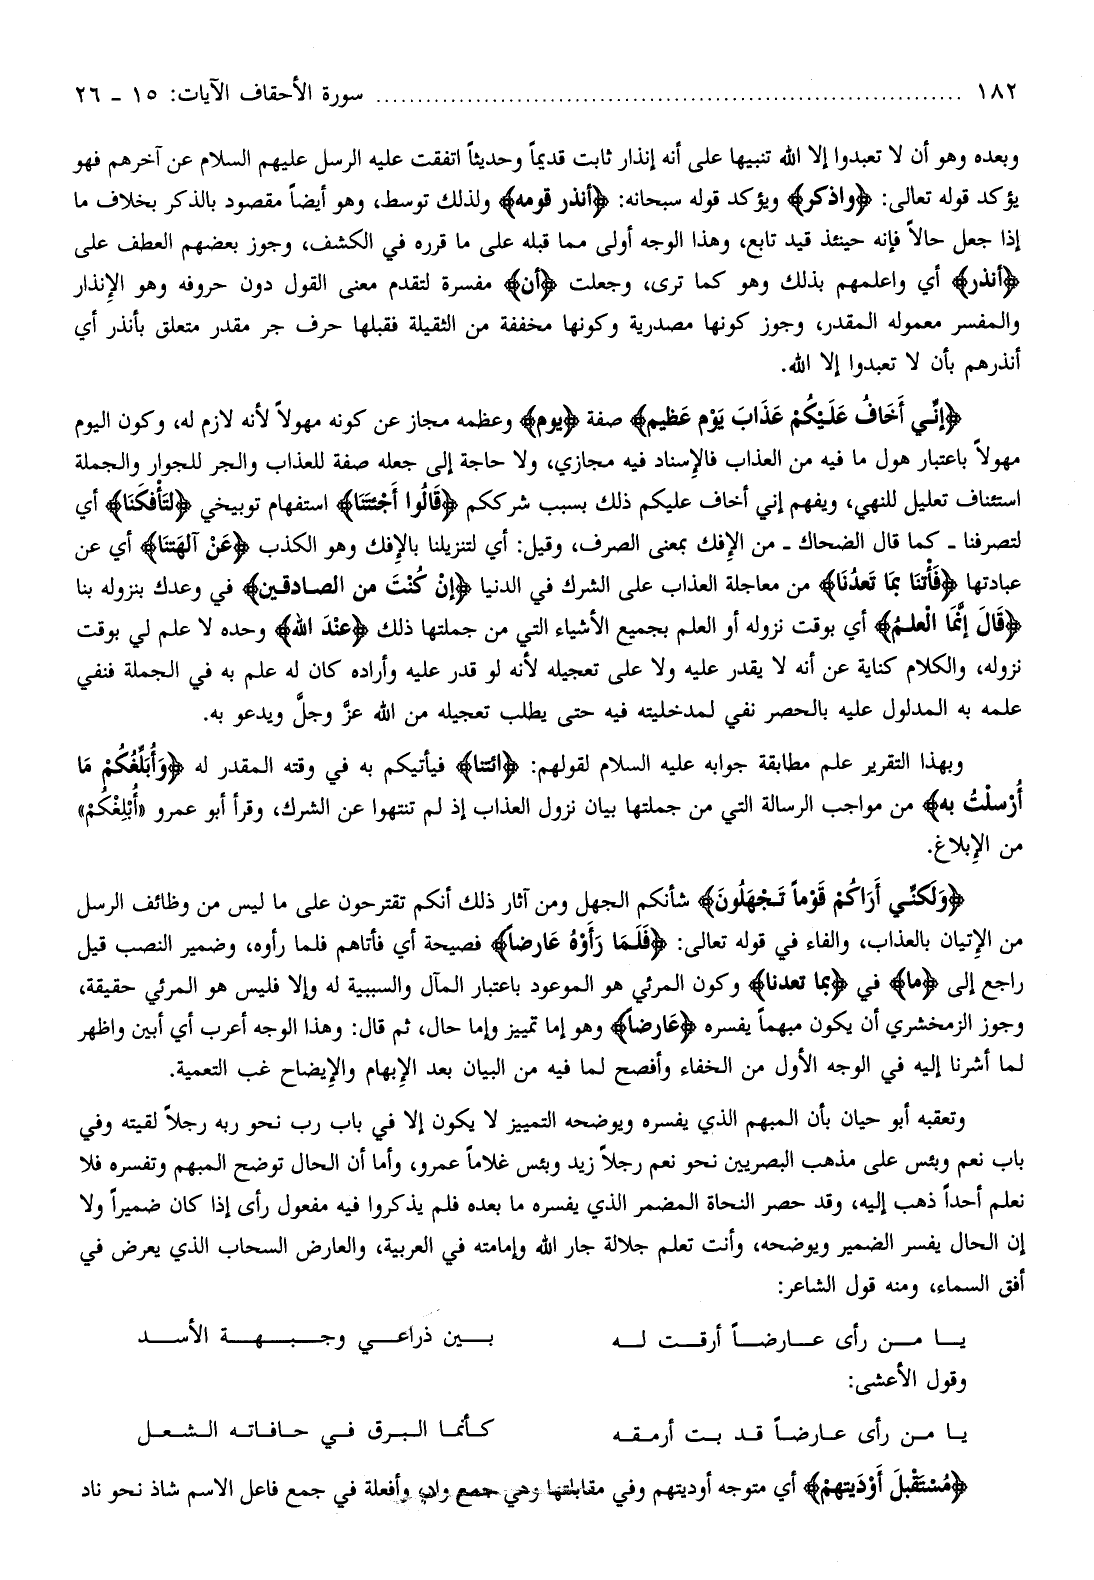 ١٨٢ ........................................................................ سورة الأحقاف الآيات: ١٥ ـ ٢٦
وبعده وهو أن لا تعبدوا إلا الله تنبيها على أنه إنذار ثابت قديماً وحديثاً اتفقت عليه الرسل عليهم السلام عن آخرهم فهو
يؤكد قوله تعالى: ﴿واذكر﴾ ويؤكد قوله سبحانه: ﴿أنذر قومه﴾ ولذلك توسط، وهو أيضاً مقصود بالذكر بخلاف ما
إذا جعل حالاً فإنه حينئذ قيد تابع، وهذا الوجه أولى مما قبله على ما قرره في الكشف، وجوز بعضهم العطف على
﴿أنذر﴾ أي واعلمهم بذلك وهو كما ترى، وجعلت ﴿أن﴾ مفسرة لتقدم معنى القول دون حروفه وهو الإنذار
والمفسر معموله المقدر، وجوز كونها مصدرية وكونها مخففة من الثقيلة فقبلها حرف جر مقدر متعلق بأنذر أي
أنذرهم بأن لا تعبدوا إلا الله.
﴿إنِّي أَخَافُ عَلَيْكُمْ عَذَابَ يَوْم عَظِيم﴾ صفة ﴿يوم﴾ وعظمه مجاز عن كونه مهولاً لأنه لازم له، وكون اليوم
مهولاً باعتبار هول ما فيه من العذاب فالإسناد فيه مجازي، ولا حاجة إلى جعله صفة للعذاب والجر للجوار والجملة
استئناف تعليل للنهي، ويفهم إني أخاف عليكم ذلك بسبب شرككم ﴿قَالُوا أَجئتَنَا﴾ استفهام توبيخي ﴿لتَأْفكَنَا﴾ أي
لتصرفنا ـ كما قال الضحاك ـ من الإفك بمعنى الصرف، وقيل: أي لتنزيلنا بالإفك وهو الكذب ﴿عَنْ آلهَتنَا﴾ أي عن
عبادتها ﴿فَأْتنَا بمَا تَعدُنَا﴾ من معاجلة العذاب على الشرك في الدنيا ﴿إنْ كُنْتَ من الصادقين﴾ في وعدك بنزوله بنا
﴿قَالَ إنَّمَا الْعلمُ﴾ أي بوقت نزوله أو العلم بجميع الأشياء التي من جملتها ذلك ﴿عنْدَ الله﴾ وحده لا علم لي بوقت
نزوله، والكلام كناية عن أنه لا يقدر عليه ولا على تعجيله لأنه لو قدر عليه وأراده كان له علم به في الجملة فنفي
علمه به المدلول عليه بالحصر نفي لمدخليته فيه حتى يطلب تعجيله من الله عزَّ وجلَّ ويدعو به.
وبهذا التقرير علم مطابقة جوابه عليه السلام لقولهم: ﴿ائتنا﴾ فيأتيكم به في وقته المقدر له ﴿وَأُبَلِّغُكُمْ مَا
أُرْسلْتُ به﴾ من مواجب الرسالة التي من جملتها بيان نزول العذاب إذ لم تنتهوا عن الشرك، وقرأ أبو عمرو «أُبْلِغُكُمْ»
من الإبلاغ.
﴿وَلَكنِّي أَرَاكُمْ قَوْماً تَجْهَلُونَ﴾ شأنكم الجهل ومن آثار ذلك أنكم تقترحون على ما ليس من وظائف الرسل
من الإتيان بالعذاب، والفاء في قوله تعالى: ﴿فَلَمَا رَأَوْهُ عَارضاً﴾ فصيحة أي فأتاهم فلما رأوه، وضمير النصب قيل
راجع إلى ﴿ما﴾ في ﴿بما تعدنا﴾ وكون المرئي هو الموعود باعتبار المآل والسببية له وإلا فليس هو المرئي حقيقة،
وجوز الزمخشري أن يكون مبهماً يفسره ﴿عَارضاً﴾ وهو إما تمييز وإما حال، ثم قال: وهذا الوجه أعرب أي أبين واظهر
لما أشرنا إليه في الوجه الأول من الخفاء وأفصح لما فيه من البيان بعد الإبهام والإيضاح غب التعمية.
وتعقبه أبو حيان بأن المبهم الذي يفسره ويوضحه التمييز لا يكون إلا في باب رب نحو ربه رجلاً لقيته وفي
باب نعم وبئس على مذهب البصريين نحو نعم رجلاً زيد وبئس غلاماً عمرو، وأما أن الحال توضح المبهم وتفسره فلا
نعلم أحداً ذهب إليه، وقد حصر النحاة المضمر الذي يفسره ما بعده فلم يذكروا فيه مفعول رأى إذا كان ضميراً ولا
إن الحال يفسر الضمير ويوضحه، وأنت تعلم جلالة جار الله وإمامته في العربية، والعارض السحاب الذي يعرض في
أفق السماء، ومنه قول الشاعر:
يا من رأى عارضاً أرقت له بين ذراعي وجبهة الأسد
وقول الأعشى:
يا من رأى عارضاً قد بت أرمقه كأنما البرق في حافاته الشعل
﴿مُسْتَقْبلَ أَوْدَيتهمْ﴾ أي متوجه أوديتهم وفي مقابلتها وهي جمع واد، وأفعلة في جمع فاعل الاسم شاذ نحو ناد